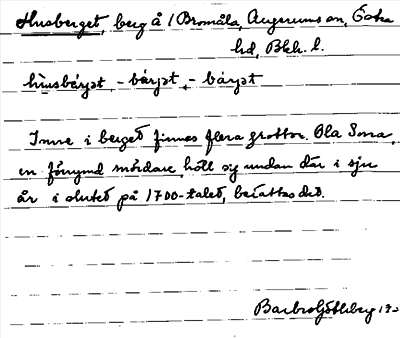 Husberget, berg å /Bromåla, Augerums sn, Östra
hd, Blek. l.
hùsbárjət, -bárjət, -bárjət
Inne i berget finnes flera grottor. Ola Sma,
en förrymd mördare, höll sig undan där i sju
år i slutet på 1700-talet, berättas det.
Barbro Götlberg 19